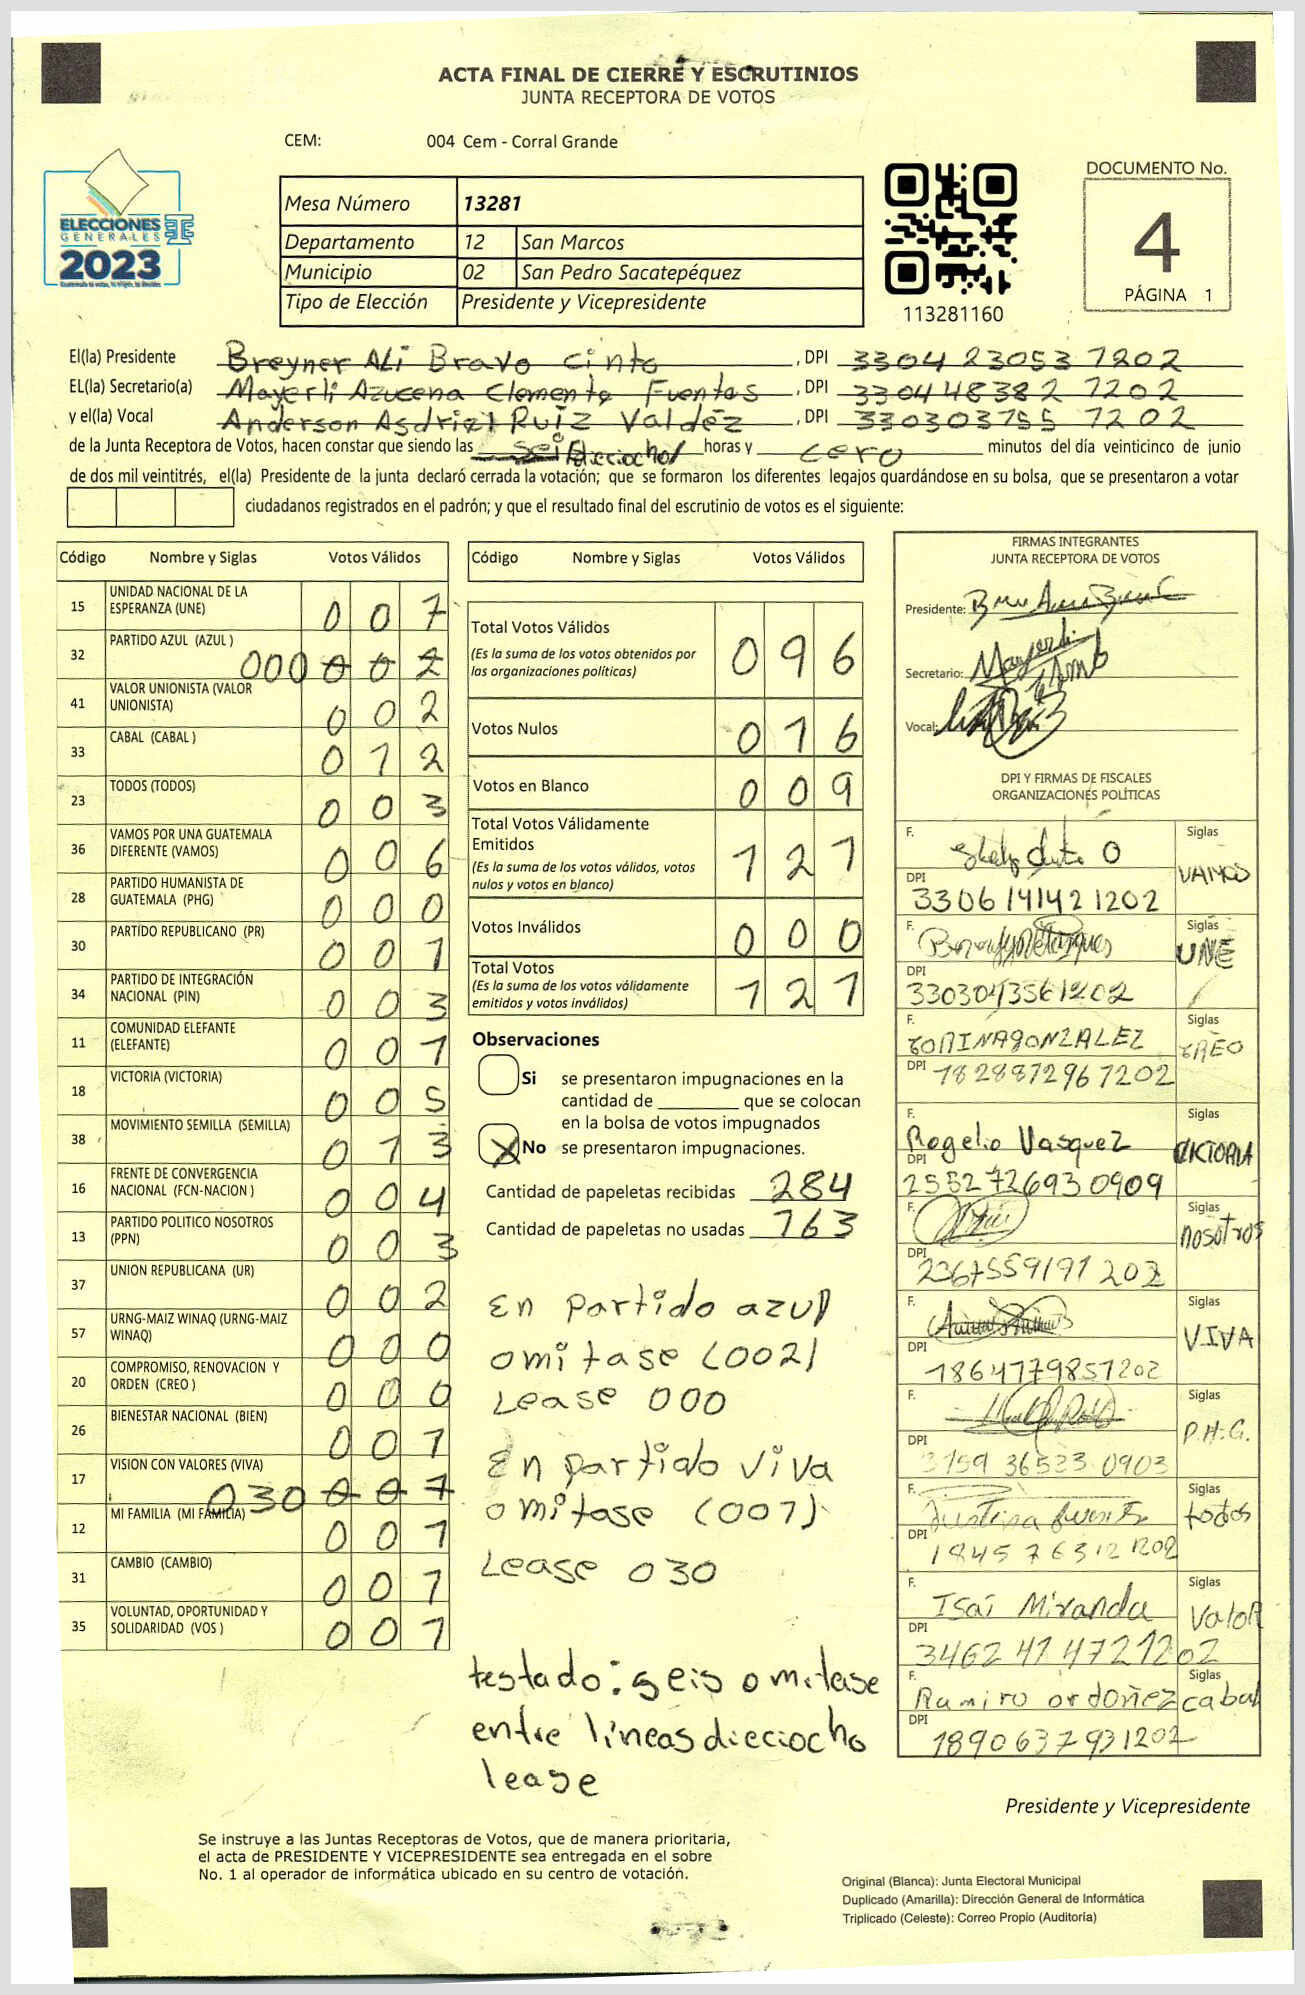 ACTA FINAL DE CIERRE Y ESCRUTINIOS
JUNTA RECEPTORA DE VOTOS
CEM: 004 Cem - Corral Grande
ELECCIONES
GENERALES
2023
Mesa Número 13281
Departamento 12 San Marcos
Municipio 02 San Pedro Sacatepéquez
Tipo de Elección Presidente y Vicepresidente
113281160
DOCUMENTO No.
4
PÁGINA 1
El(la) Presidente Breyner ALi Bravo cinto , DPI 3304 23053 1202
EL(la) Secretario(a) Mayerli Azucena Clemente Fuentes , DPI 330448382 1202
y el(la) Vocal Anderson Ruiz Valdéz , DPI 330303755 1202
de la Junta Receptora de Votos, hacen constar que siendo las seis dieciocho horas y cero minutos del día veinticinco de junio
de dos mil veintitrés, el(la) Presidente de la junta declaró cerrada la votación; que se formaron los diferentes legajos guardándose en su bolsa, que se presentaron a votar
ciudadanos registrados en el padrón; y que el resultado final del escrutinio de votos es el siguiente:
Código Nombre y Siglas Votos Válidos
15 UNIDAD NACIONAL DE LA ESPERANZA (UNE) 0 0 7
32 PARTIDO AZUL (AZUL ) 000 0 0 2
41 VALOR UNIONISTA (VALOR UNIONISTA) 0 0 2
33 CABAL (CABAL ) 0 1 2
23 TODOS (TODOS) 0 0 3
36 VAMOS POR UNA GUATEMALA DIFERENTE (VAMOS) 0 0 6
28 PARTIDO HUMANISTA DE GUATEMALA (PHG) 0 0 0
30 PARTIDO REPUBLICANO (PR) 0 0 1
34 PARTIDO DE INTEGRACIÓN NACIONAL (PIN) 0 0 3
11 COMUNIDAD ELEFANTE (ELEFANTE) 0 0 1
18 VICTORIA (VICTORIA) 0 0 5
38 MOVIMIENTO SEMILLA (SEMILLA) 0 1 3
16 FRENTE DE CONVERGENCIA NACIONAL (FCN-NACION ) 0 0 4
13 PARTIDO POLITICO NOSOTROS (PPN) 0 0 3
37 UNION REPUBLICANA (UR) 0 0 2
57 URNG-MAIZ WINAQ (URNG-MAIZ WINAQ) 0 0 0
20 COMPROMISO, RENOVACION Y ORDEN (CREO ) 0 0 0
26 BIENESTAR NACIONAL (BIEN) 0 0 1
17 VISION CON VALORES (VIVA) 030 0 0 1
12 MI FAMILIA (MI FAMILIA) 0 0 1
31 CAMBIO (CAMBIO) 0 0 1
35 VOLUNTAD, OPORTUNIDAD Y SOLIDARIDAD (VOS ) 0 0 1
Código Nombre y Siglas Votos Válidos
Total Votos Válidos 0 9 6
(Es la suma de los votos obtenidos por
las organizaciones políticas)
Votos Nulos 0 1 6
Votos en Blanco 0 0 9
Total Votos Válidamente
Emitidos 1 2 1
(Es la suma de los votos válidos, votos
nulos y votos en blanco)
Votos Inválidos 0 0 0
Total Votos 1 2 1
(Es la suma de los votos válidamente
emitidos y votos inválidos)
Observaciones
Si se presentaron impugnaciones en la
cantidad de ________ que se colocan
en la bolsa de votos impugnados
X No se presentaron impugnaciones.
Cantidad de papeletas recibidas 284
Cantidad de papeletas no usadas 163
En partido azul
omitase (002)
Lease 000
En partido viva
omitase (001)
Lease 030
testado: seis omitase
entre lineas dieciocho
lease
FIRMAS INTEGRANTES
JUNTA RECEPTORA DE VOTOS
Presidente:
Secretario:
Vocal:
DPI Y FIRMAS DE FISCALES
ORGANIZACIONES POLÍTICAS
F. Siglas
VAMOS
DPI 3306141421202
F. Siglas
UNE
DPI 3303043561202
F. Siglas
GONZALEZ CREO
DPI 1828872961202
F. Siglas
Rogelio Vasquez VICTORIA
DPI 2552726930909
F. Siglas
nosotros
DPI 2367559191202
F. Siglas
VIVA
DPI 1864779851202
F. Siglas
P.H.G.
DPI 3159 36533 0903
F. Siglas
Justina Fuentes todos
DPI 1845 76312 1202
F. Siglas
Isaí Miranda Valor
DPI 3462 41 4721202
F. Siglas
Ramiro ordoñez cabal
DPI 1890637931202
Presidente y Vicepresidente
Se instruye a las Juntas Receptoras de Votos, que de manera prioritaria,
el acta de PRESIDENTE Y VICEPRESIDENTE sea entregada en el sobre
No. 1 al operador de informática ubicado en su centro de votación.
Original (Blanca): Junta Electoral Municipal
Duplicado (Amarilla): Dirección General de Informática
Triplicado (Celeste): Correo Propio (Auditoría)